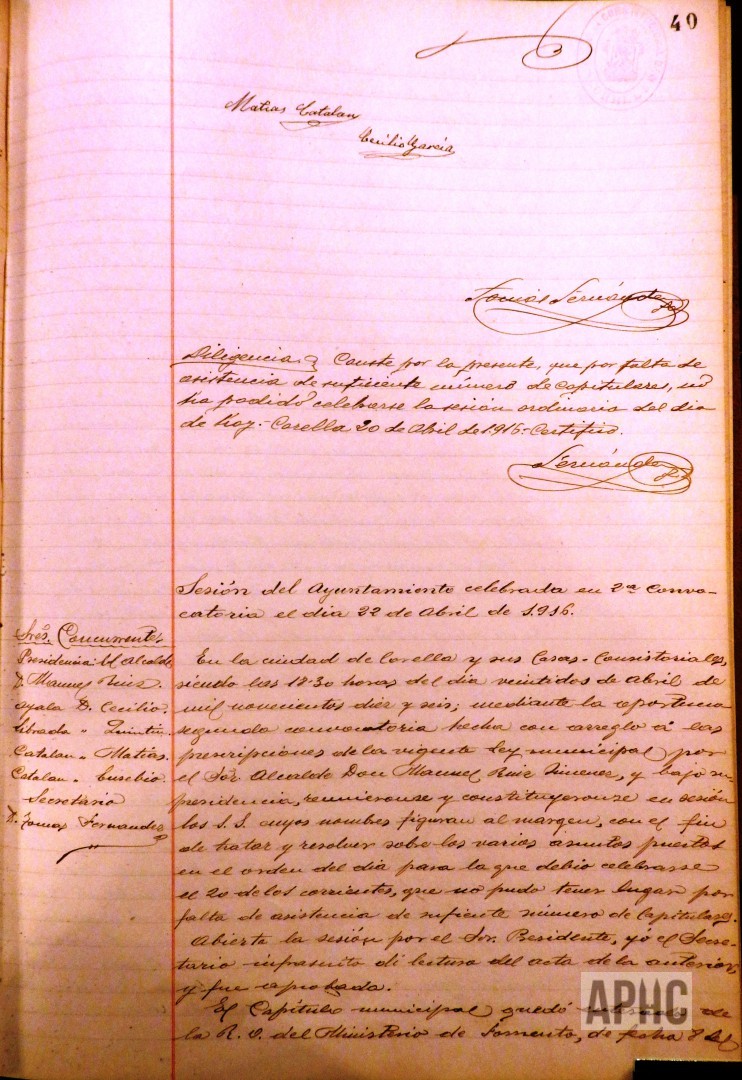 40
Matias Catalan
Cecilio Garcia
Tomás Fernández
Diligencia. Conste por la presente, que por falta de
asistencia de suficiente número de capitulares, no
ha podido celebrarse la sesión ordinaria del dia
de hoy.- Corella 20 de Abril de 1916.- Certifico.
Fernández
Sesión del Ayuntamiento celebrada en 2ª convo-
catoria el dia 22 de Abril de 1.916.
Sres. Concurrentes
Presidencia: El Alcalde
D. Manuel Ruiz.
ayala D. Cecilio.
librada " Quintin
Catalan " Matias.
Catalan " Eusebio
Secretario
D. Tomas Fernandez
En la ciudad de Corella y sus Casas-Consistoriales,
siendo las 18'30 horas del dia veintidos de Abril de
mil novecientos diez y seis; mediante la oportuna
segunda convocatoria hecha con arreglo á las
prescripciones de la vigente ley municipal por
el Sor. Alcalde Don Manuel Ruiz Jimenez, y bajo su
presidencia, reunieronse y constituyeronse en sesión
los S.S. cuyos nombres figuran al margen, con el fin
de tratar y resolver sobe los varios asuntos puestos
en el orden del dia para la que debio celebrarse
el 20 de los corrientes, que no pudo tener lugar por
falta de asistencia de suficiente número de Capitulares.
Abierta la sesión por el Sor. Presidente, yó el Secre-
tario infrascrito di lectura del acta de la anterior,
y fue aprobada.
El Capítulo municipal quedó enterado de
la R. O. del Ministerio de Fomento, de fecha 8 del
APHC